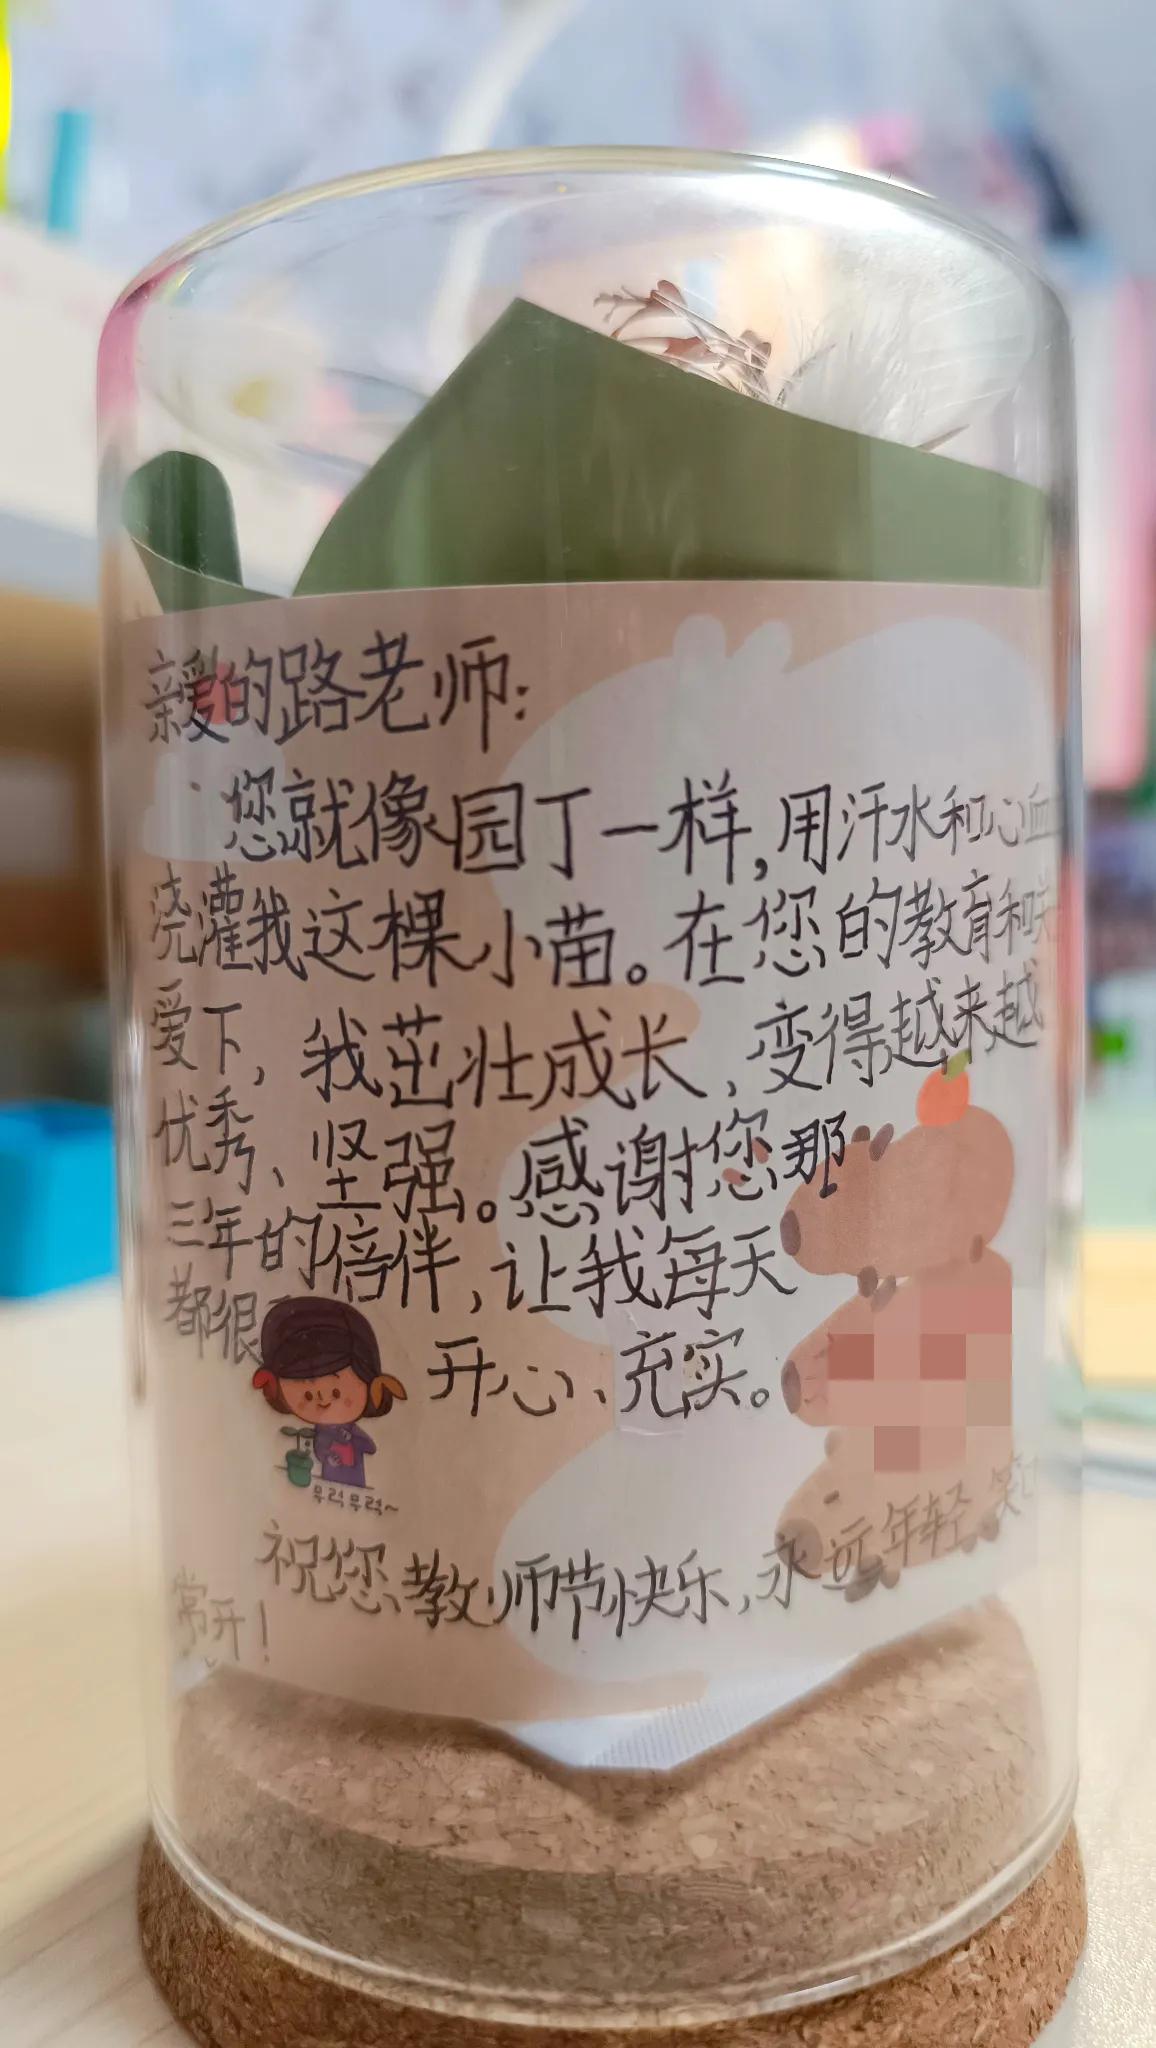 亲爱的路老师:
您就像园丁一样,用汗水和心血
浇灌我这棵小苗。在您的教育和关
爱下,我茁壮成长,变得越来越
优秀、坚强。感谢您那
三年的陪伴,让我每天
都很
开心、充实。
무럭무럭~
祝您教师节快乐,永远年轻 笑口
常开!